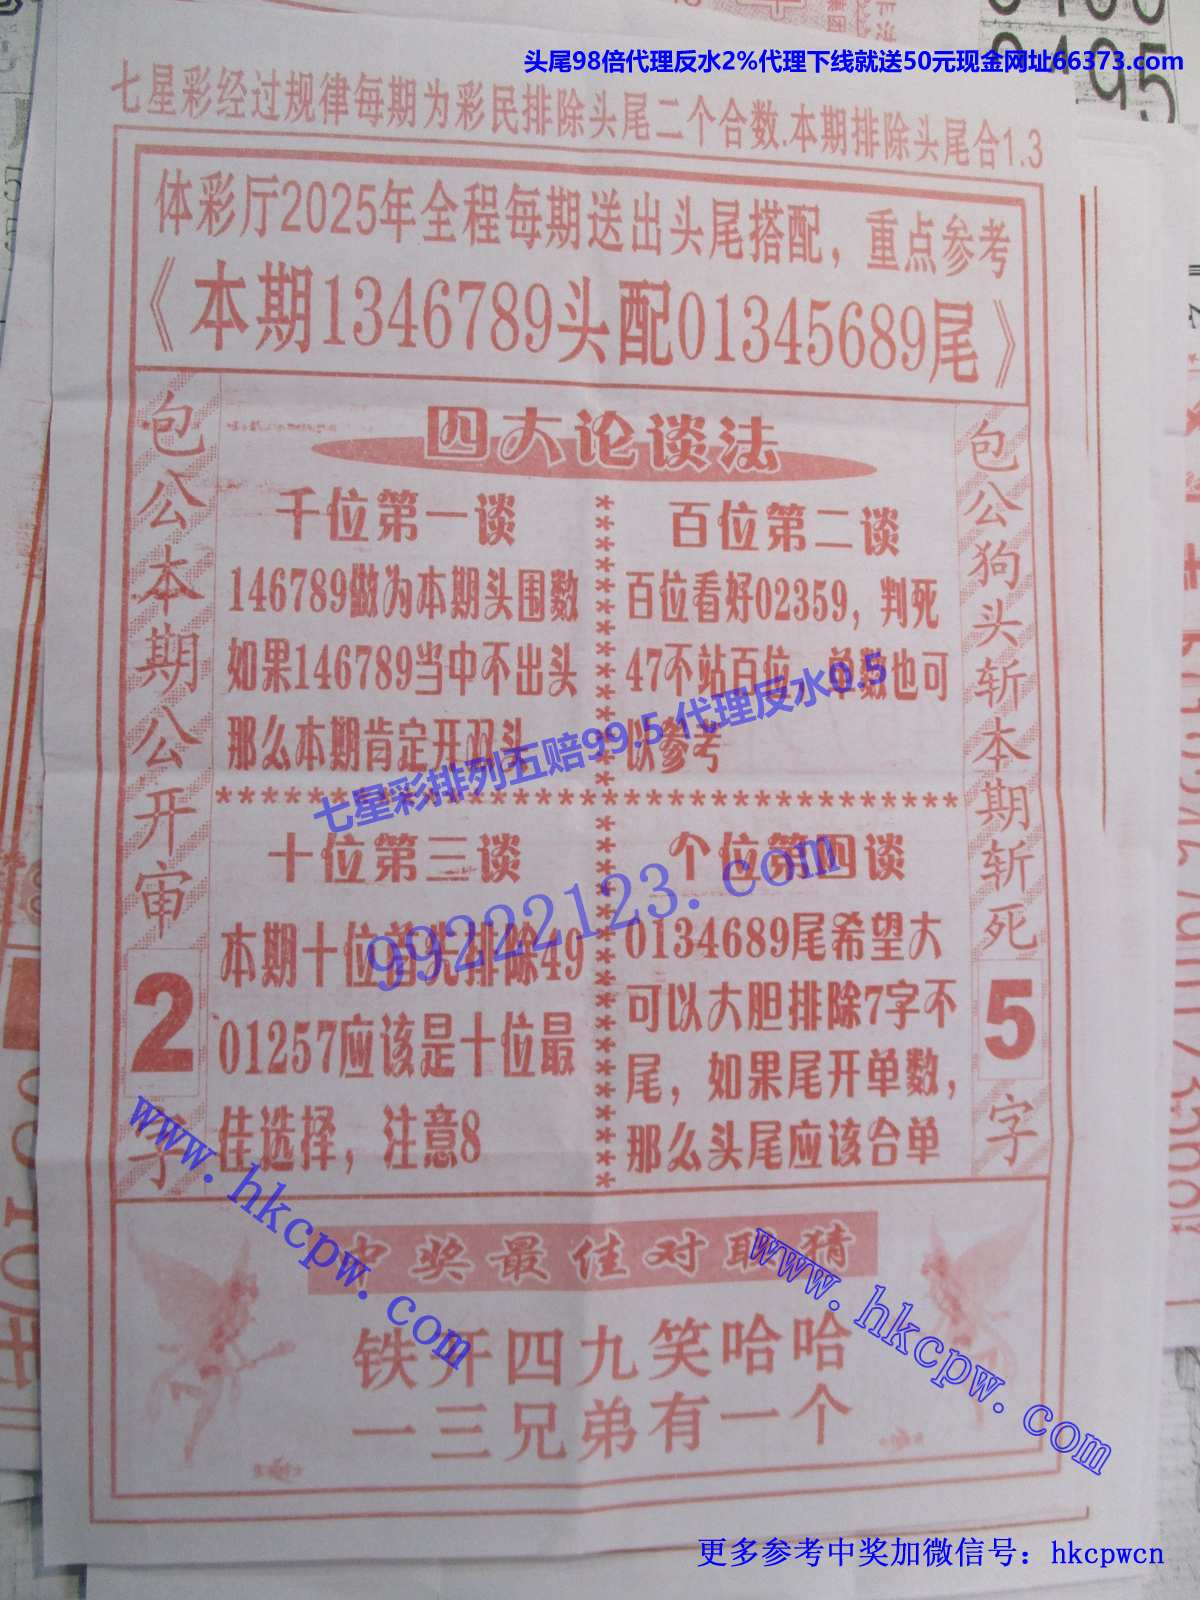 头尾98倍代理反水2%代理下线就送50元现金网址66373.com
七星彩经过规律每期为彩民排除头尾二个合数.本期排除头尾合1.3
体彩厅2025年全程每期送出头尾搭配，重点参考
《本期1346789头配01345689尾》
包公本期公开审2字
四大论谈法
千位第一谈
146789做为本期头围数
如果146789当中不出头
那么本期肯定开双头
百位第二谈
百位看好02359，判死
47不站百位，单数也可
供参考
十位第三谈
本期十位首先排除49
01257应该是十位最
佳选择，注意8
个位第四谈
0134689尾希望大
可以大胆排除7字不
尾，如果尾开单数，
那么头尾应该合单
包公狗头斩本期斩死5字
七星彩排列五赔99.5 代理反水0.5
99222123.com
中奖最佳对联猜
铁开四九笑哈哈
一三兄弟有一个
www.hkcpw.com
www.hkcpw.com
更多参考中奖加微信号：hkcpwcn